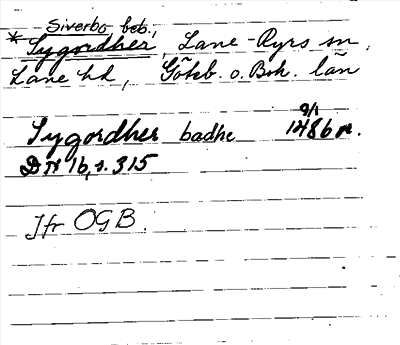 Siverbo beb.,
* Sygordher, Lane-Ryrs sn,
Lane hd, Göteb. o. Boh. län
9/1
Sygordher badhe 1486 or.
DN 16, s. 315
Jfr OGB.